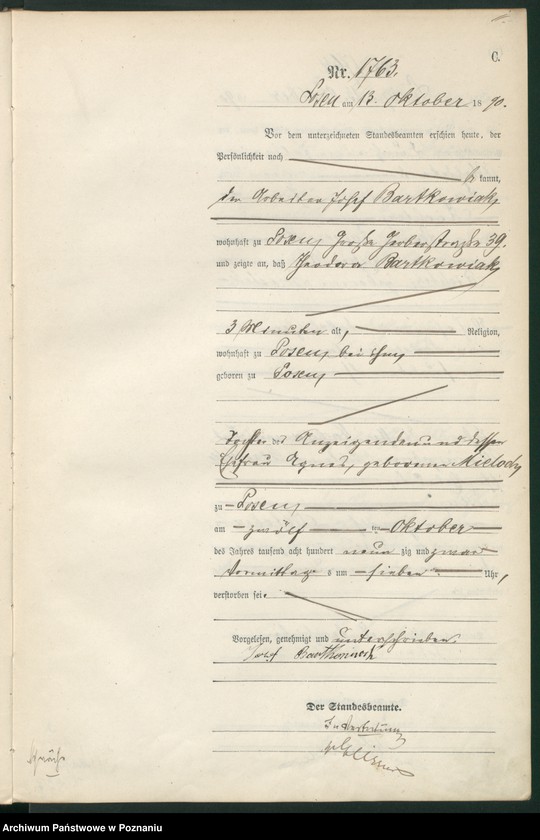 C.
Nr. 1763.
Posen am 13. Oktober 1890.
Vor dem unterzeichneten Standesbeamten erschien heute, der
Persönlichkeit nach
be kannt,
der Arbeiter Josef Bartkowiak,
wohnhaft zu Posen, Große Gerberstraße 39.
und zeigte an, daß Theodora Bartkowiak,
3 Minuten alt, Religion,
wohnhaft zu Posen, bei ihm,
geboren zu Posen,
Tochter des Anzeigenden und dessen
Ehefrau Agnes, geborenen Mieloch,
zu Posen,
am zwölf ten Oktober
des Jahres tausend acht hundert neun zig und zwar
Vormittags um sieben Uhr,
verstorben sei.
Vorgelesen, genehmigt und unterschrieben.
Josef
Der Standesbeamte.
In Vertretung
Archiwum Państwowe w Poznaniu